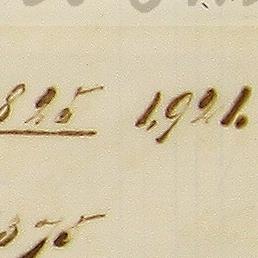 825 1,921.
375